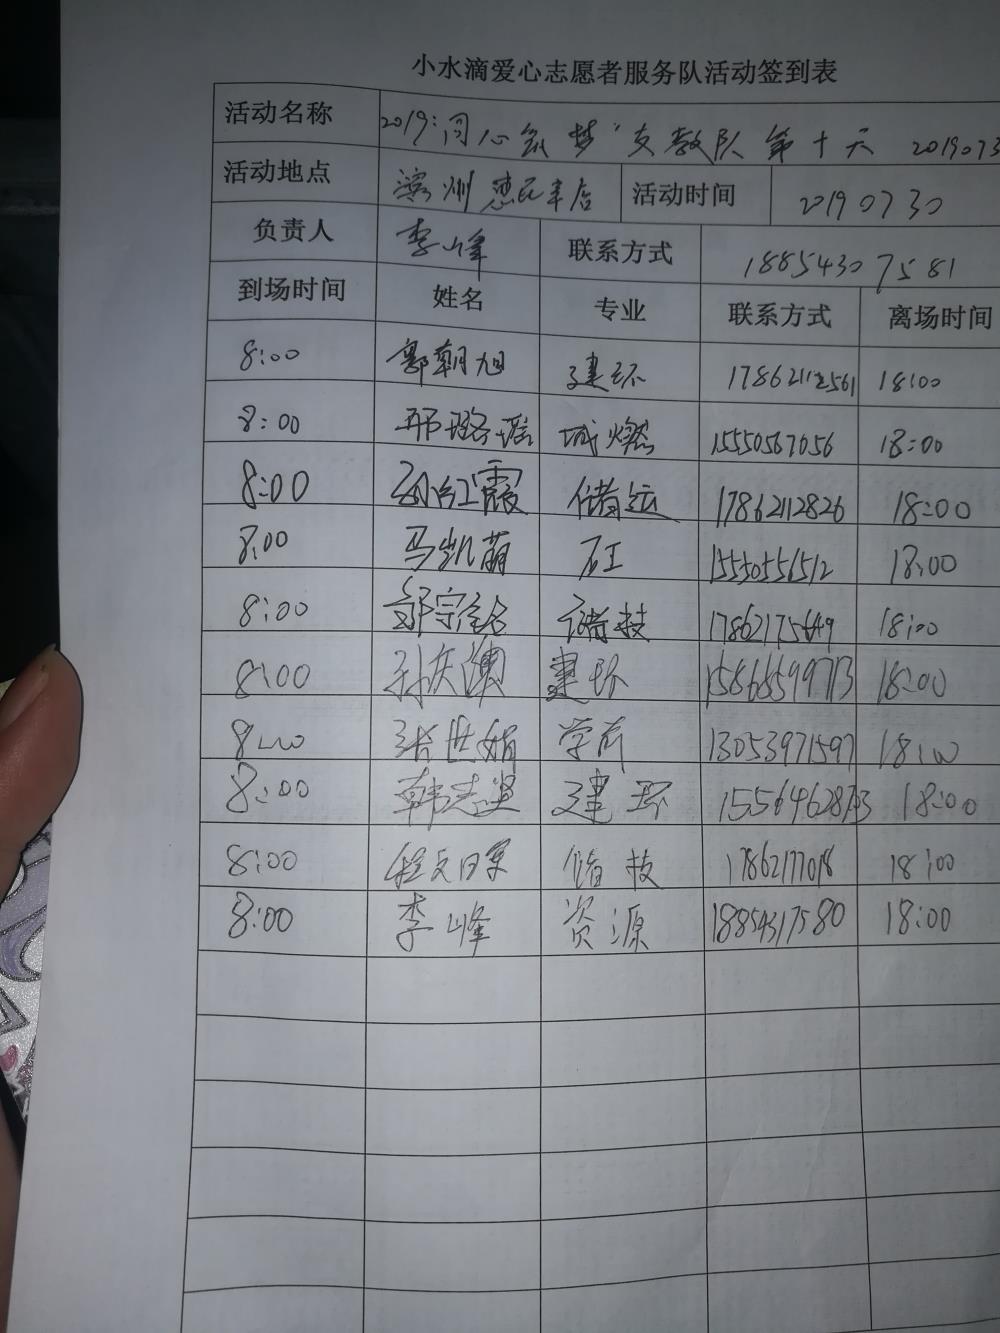 小水滴爱心志愿者服务队活动签到表
活动名称 2019:同心筑梦"支教队 第十天 2019073
活动地点 滨州惠民丰后 活动时间 20190730
负责人 李峰 联系方式 18854307581
到场时间 姓名 专业 联系方式 离场时间
8:00 郭朝旭 建环 17862112561 18:00
8:00 邢璐瑶 城燃 15550567056 18:00
8:00 孙红霞 储运 17862112826 18:00
8:00 马凯萌 石工 15550556512 18:00
8:00 储技 18:00
8:00 孙庆澳 建环 15868599713 18:00
8:00 张世娟 学前 13053971597 18:00
8:00 韩志贤 建环 18:00
8:00 程文日 储技 18:00
8:00 李峰 资源 18854317580 18:00